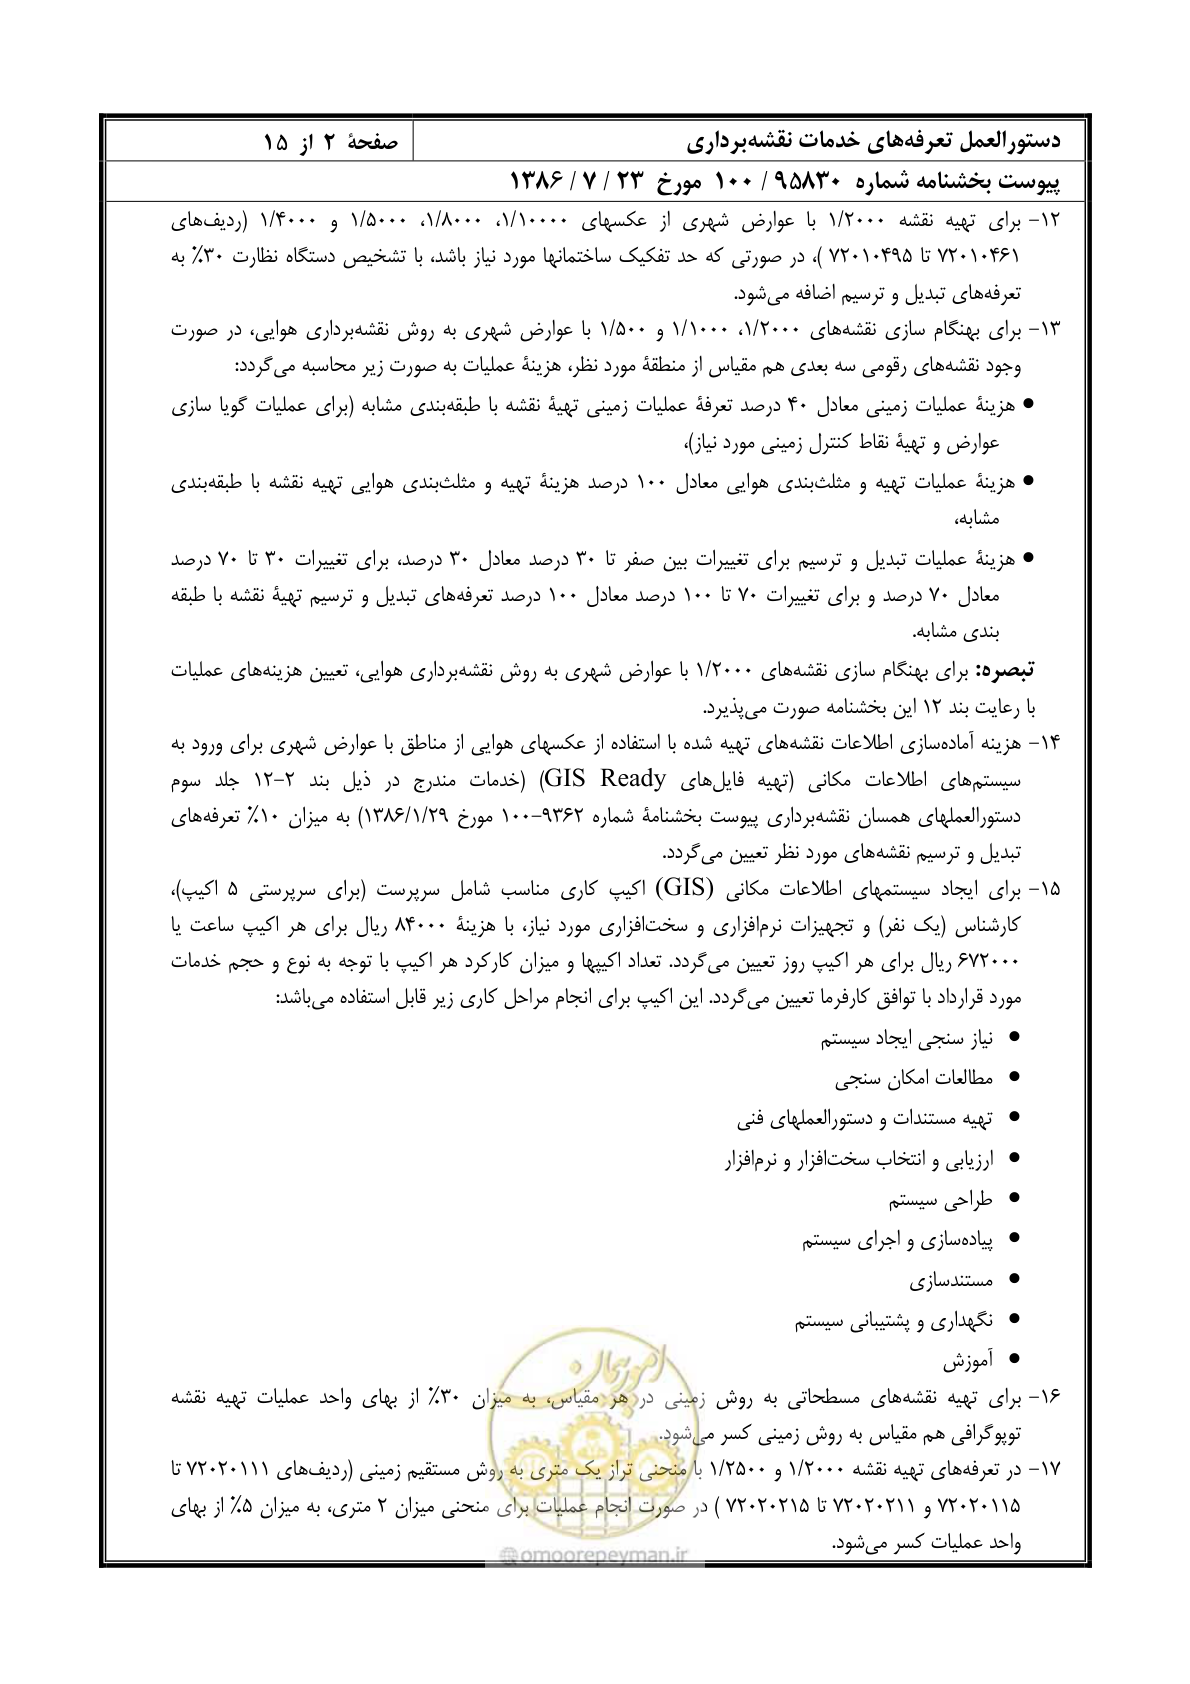 دستورالعمل تعرفه‌های خدمات نقشه‌برداری
صفحهٔ ۲ از ۱۵
پیوست بخشنامه شماره ۹۵۸۳۰ / ۱۰۰ مورخ ۲۳ / ۷ / ۱۳۸۶
۱۲- برای تهیه نقشه ۱/۲۰۰۰ با عوارض شهری از عکسهای ۱/۱۰۰۰۰، ۱/۸۰۰۰، ۱/۵۰۰۰ و ۱/۴۰۰۰ (ردیف‌های
۷۲۰۱۰۴۶۱ تا ۷۲۰۱۰۴۹۵ )، در صورتی که حد تفکیک ساختمانها مورد نیاز باشد، با تشخیص دستگاه نظارت ۳۰٪ به
تعرفه‌های تبدیل و ترسیم اضافه می‌شود.
۱۳- برای بهنگام سازی نقشه‌های ۱/۲۰۰۰، ۱/۱۰۰۰ و ۱/۵۰۰ با عوارض شهری به روش نقشه‌برداری هوایی، در صورت
وجود نقشه‌های رقومی سه بعدی هم مقیاس از منطقهٔ مورد نظر، هزینهٔ عملیات به صورت زیر محاسبه می‌گردد:
● هزینهٔ عملیات زمینی معادل ۴۰ درصد تعرفهٔ عملیات زمینی تهیهٔ نقشه با طبقه‌بندی مشابه (برای عملیات گویا سازی
عوارض و تهیهٔ نقاط کنترل زمینی مورد نیاز)،
● هزینهٔ عملیات تهیه و مثلث‌بندی هوایی معادل ۱۰۰ درصد هزینهٔ تهیه و مثلث‌بندی هوایی تهیه نقشه با طبقه‌بندی
مشابه،
● هزینهٔ عملیات تبدیل و ترسیم برای تغییرات بین صفر تا ۳۰ درصد معادل ۳۰ درصد، برای تغییرات ۳۰ تا ۷۰ درصد
معادل ۷۰ درصد و برای تغییرات ۷۰ تا ۱۰۰ درصد معادل ۱۰۰ درصد تعرفه‌های تبدیل و ترسیم تهیهٔ نقشه با طبقه
بندی مشابه.
تبصره: برای بهنگام سازی نقشه‌های ۱/۲۰۰۰ با عوارض شهری به روش نقشه‌برداری هوایی، تعیین هزینه‌های عملیات
با رعایت بند ۱۲ این بخشنامه صورت می‌پذیرد.
۱۴- هزینه آماده‌سازی اطلاعات نقشه‌های تهیه شده با استفاده از عکسهای هوایی از مناطق با عوارض شهری برای ورود به
سیستم‌های اطلاعات مکانی (تهیه فایل‌های GIS Ready) (خدمات مندرج در ذیل بند ۲-۱۲ جلد سوم
دستورالعملهای همسان نقشه‌برداری پیوست بخشنامهٔ شماره ۹۳۶۲-۱۰۰ مورخ ۱۳۸۶/۱/۲۹) به میزان ۱۰٪ تعرفه‌های
تبدیل و ترسیم نقشه‌های مورد نظر تعیین می‌گردد.
۱۵- برای ایجاد سیستمهای اطلاعات مکانی (GIS) اکیپ کاری مناسب شامل سرپرست (برای سرپرستی ۵ اکیپ)،
کارشناس (یک نفر) و تجهیزات نرم‌افزاری و سخت‌افزاری مورد نیاز، با هزینهٔ ۸۴۰۰۰ ریال برای هر اکیپ ساعت یا
۶۷۲۰۰۰ ریال برای هر اکیپ روز تعیین می‌گردد. تعداد اکیپها و میزان کارکرد هر اکیپ با توجه به نوع و حجم خدمات
مورد قرارداد با توافق کارفرما تعیین می‌گردد. این اکیپ برای انجام مراحل کاری زیر قابل استفاده می‌باشد:
● نیاز سنجی ایجاد سیستم
● مطالعات امکان سنجی
● تهیه مستندات و دستورالعملهای فنی
● ارزیابی و انتخاب سخت‌افزار و نرم‌افزار
● طراحی سیستم
● پیاده‌سازی و اجرای سیستم
● مستندسازی
● نگهداری و پشتیبانی سیستم
● آموزش
امورپیمان
۱۶- برای تهیه نقشه‌های مسطحاتی به روش زمینی در هر مقیاس، به میزان ۳۰٪ از بهای واحد عملیات تهیه نقشه
توپوگرافی هم مقیاس به روش زمینی کسر می‌شود.
۱۷- در تعرفه‌های تهیه نقشه ۱/۲۰۰۰ و ۱/۲۵۰۰ با منحنی تراز یک متری به روش مستقیم زمینی (ردیف‌های ۷۲۰۲۰۱۱۱ تا
۷۲۰۲۰۱۱۵ و ۷۲۰۲۰۲۱۱ تا ۷۲۰۲۰۲۱۵ ) در صورت انجام عملیات برای منحنی میزان ۲ متری، به میزان ۵٪ از بهای
واحد عملیات کسر می‌شود.
@omoorepeyman.ir